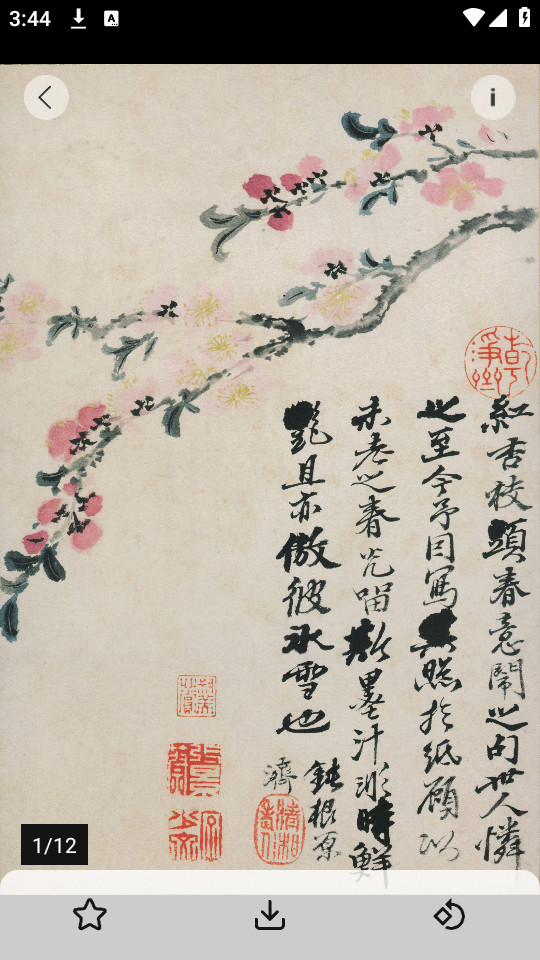 3:44
紅杏枝頭春意鬧之句世人憐
至今予因寫照於紙顧以
未老之春光留斯墨汁時鮮
艷且亦傲彼冰雪也
鈍根原
濟
1/12